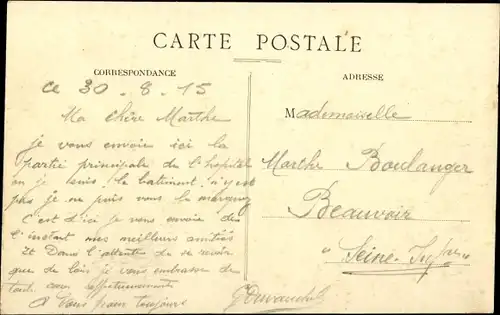 CARTE POSTALE
CORRESPONDANCE
ce 30 - 8 - 15
Ma chère Marthe
je vous envoie ici la
partie principale de l'hopital
ou je suis! le batiment n'yest
pas je ne puis vous le marquez
C'est d'ici je vous envoie des
l'instant mes meilleurs amitiés
Et Dans l'attente de se revoir
que de loin je vous embrasse de
tout cœur affectueusement
A Vous pour toujours
ADRESSE
Mademoiselle
Marthe Boulanger
Beauvoir
"Seine-Infre"